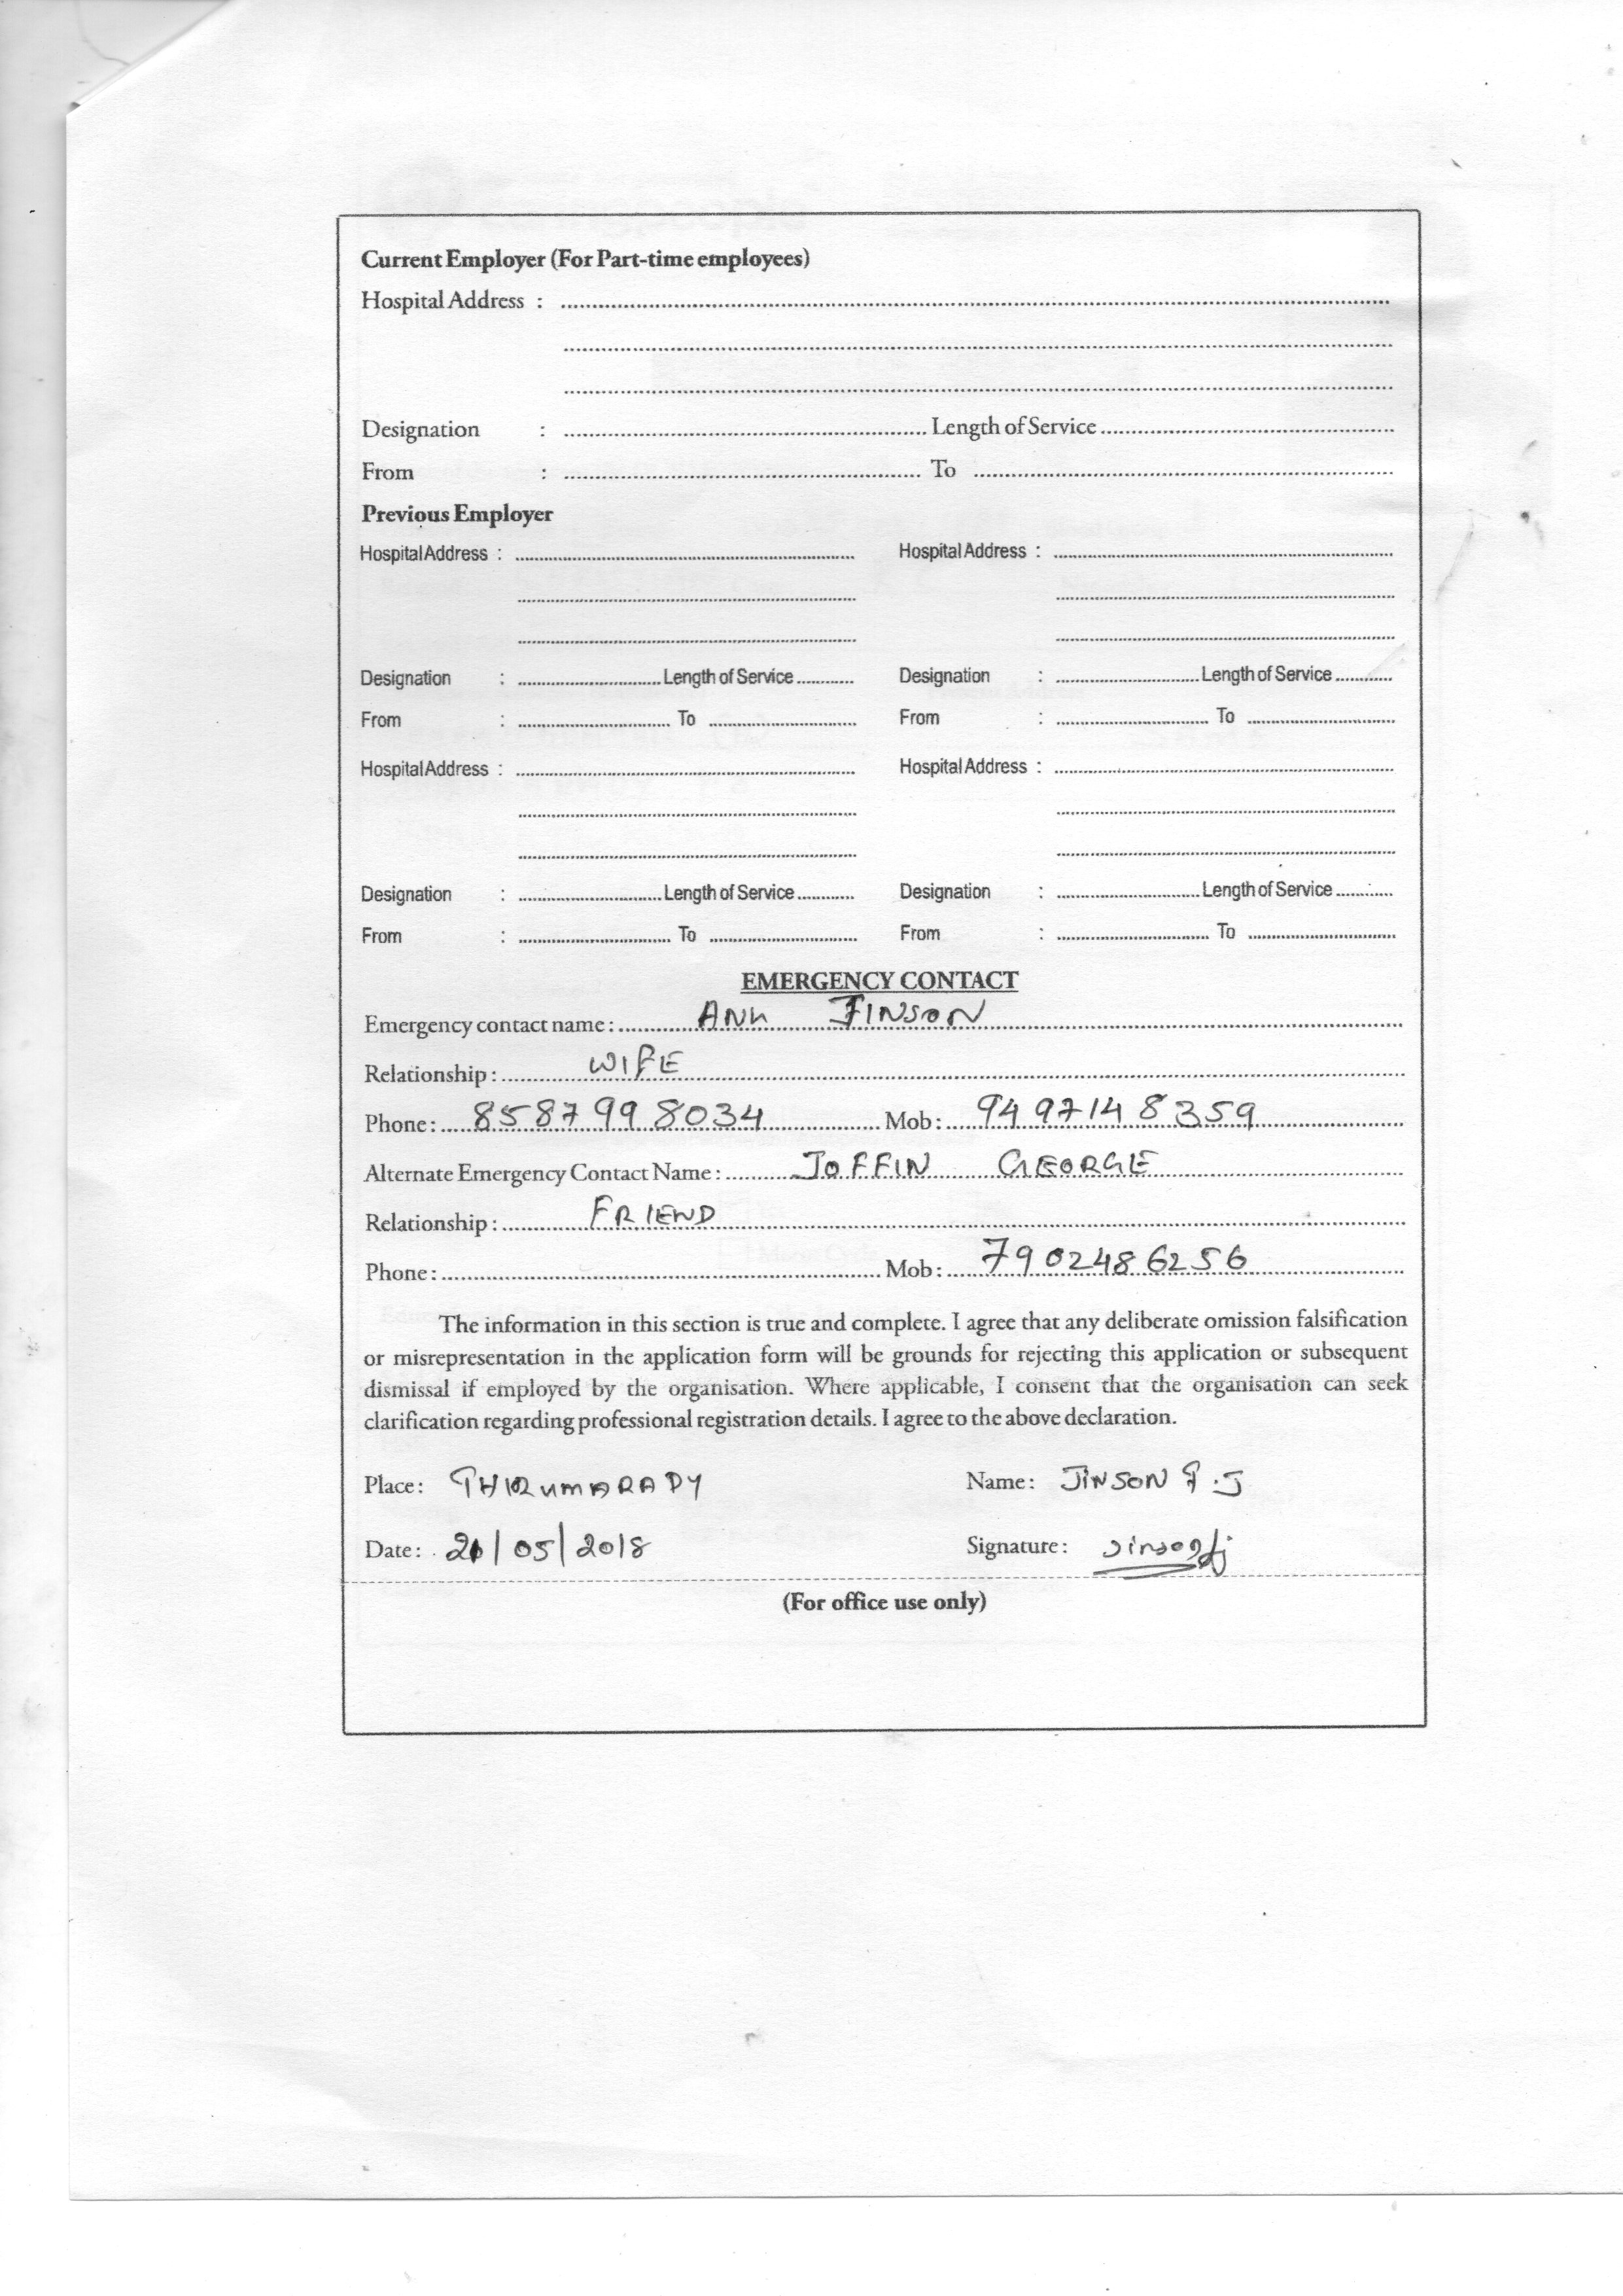 Current Employer (For Part-time employees)
Hospital Address :
Designation : Length of Service
From : To
Previous Employer
Hospital Address : Hospital Address :
Designation : Length of Service Designation : Length of Service
From : To From : To
Hospital Address : Hospital Address :
Designation : Length of Service Designation : Length of Service
From : To From : To
EMERGENCY CONTACT
Emergency contact name : ANN JINSON
Relationship : WIFE
Phone : 8587998034 Mob : 9497148359
Alternate Emergency Contact Name : JOFFIN GEORGE
Relationship : FRIEND
Phone : Mob : 7902486256
The information in this section is true and complete. I agree that any deliberate omission falsification
or misrepresentation in the application form will be grounds for rejecting this application or subsequent
dismissal if employed by the organisation. Where applicable, I consent that the organisation can seek
clarification regarding professional registration details. I agree to the above declaration.
Place : THIRUMARADY Name : JINSON
Date : /05/2018 Signature :
(For office use only)